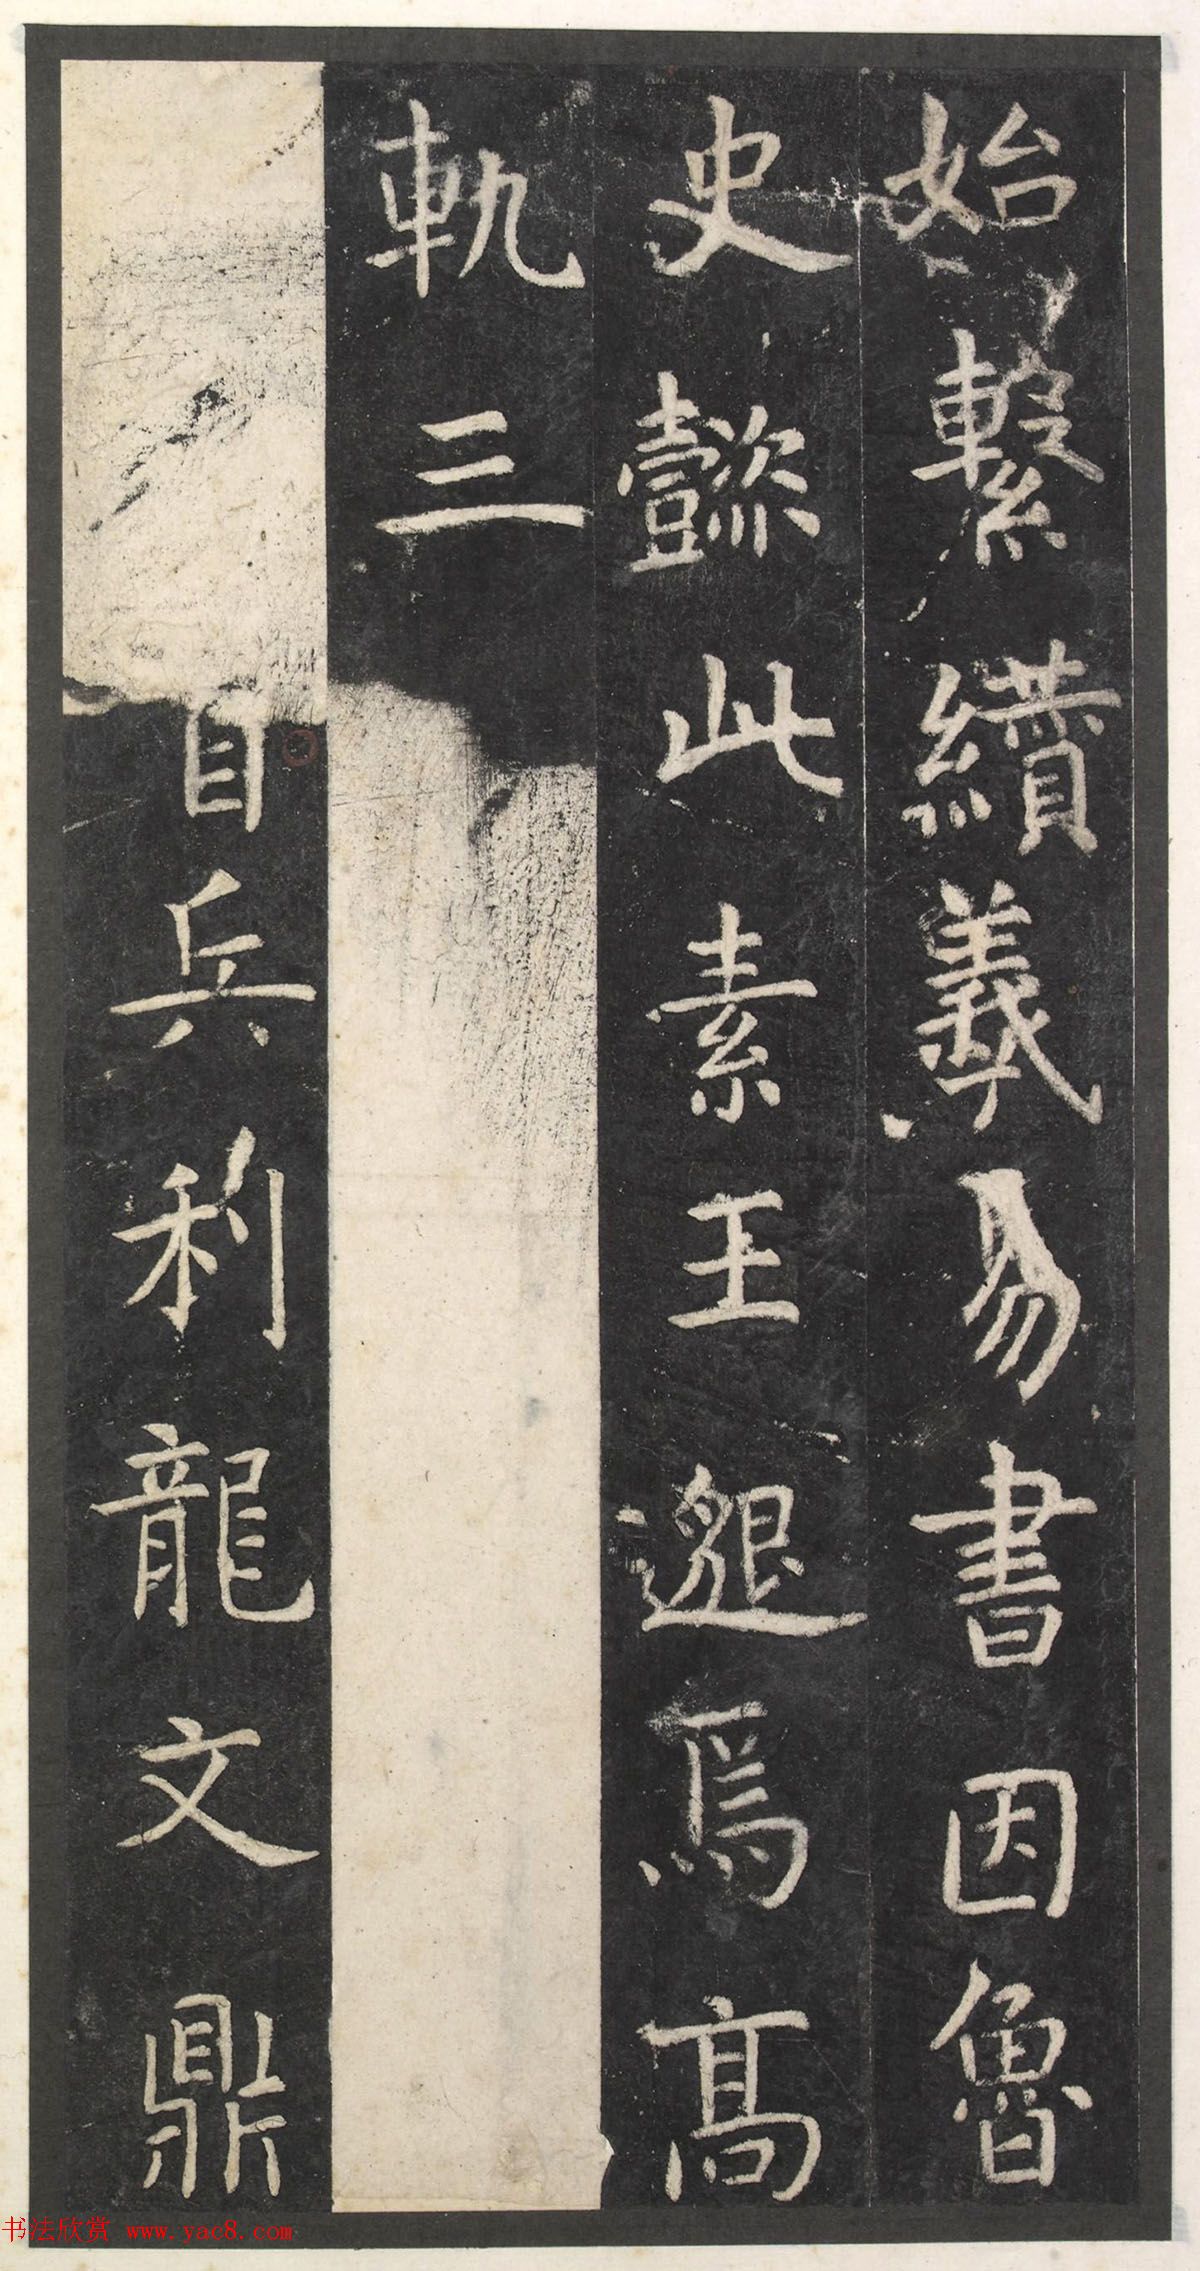 始繫纘羲易書因魯
史懿此素王邈焉高
軌三
自兵利龍文鼎
书法欣赏 www.yac8.com